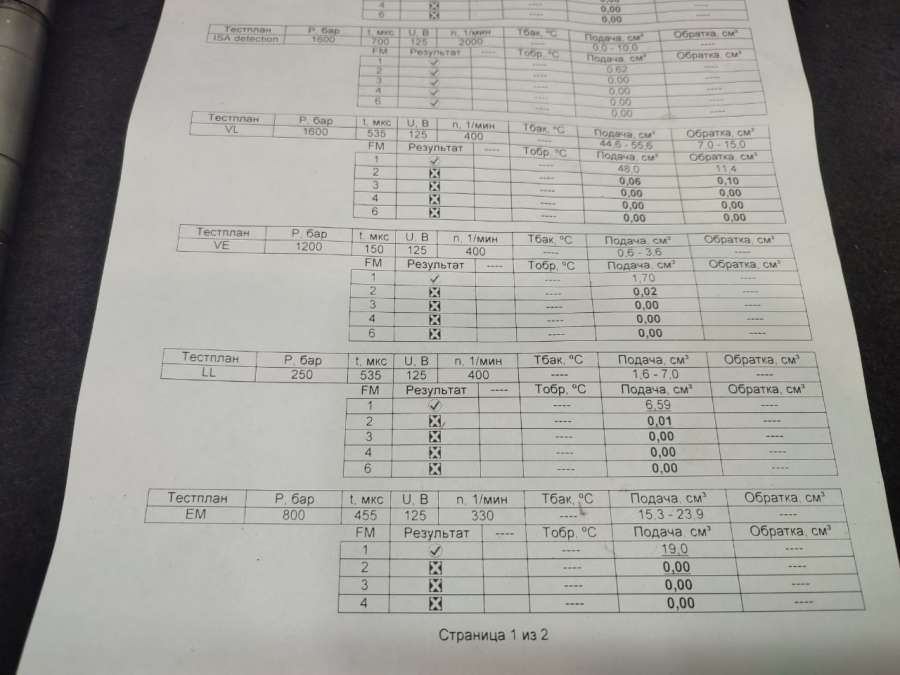 4 ---- 0,00 ----
6 ---- 0,00 ----
0,00
Тестплан Р, бар t, мкс U, В n, 1/мин Тбак, ºС Подача, см³ Обратка, см³
ISA detection 1600 700 125 2000 ---- 0,0 - 10,0 ----
FM Результат ---- Тобр, ºС Подача, см³ Обратка, см³
1 ---- 0,62 ----
2 ---- 0,00 ----
3 ---- 0,00 ----
4 ---- 0,00 ----
6 ---- 0,00 ----
Тестплан Р, бар t, мкс U, В n, 1/мин Тбак, ºС Подача, см³ Обратка, см³
VL 1600 535 125 400 ---- 44,6 - 55,6 7,0 - 15,0
FM Результат ---- Тобр, ºС Подача, см³ Обратка, см³
1 ---- 48,0 11,4
2 ---- 0,06 0,10
3 ---- 0,00 0,00
4 ---- 0,00 0,00
6 ---- 0,00 0,00
Тестплан Р, бар t, мкс U, В n, 1/мин Тбак, ºС Подача, см³ Обратка, см³
VE 1200 150 125 400 ---- 0,6 - 3,6 ----
FM Результат ---- Тобр, ºС Подача, см³ Обратка, см³
1 ---- 1,70 ----
2 ---- 0,02 ----
3 ---- 0,00 ----
4 ---- 0,00 ----
6 ---- 0,00 ----
Тестплан Р, бар t, мкс U, В n, 1/мин Тбак, ºС Подача, см³ Обратка, см³
LL 250 535 125 400 ---- 1,6 - 7,0 ----
FM Результат ---- Тобр, ºС Подача, см³ Обратка, см³
1 ---- 6,59 ----
2 ---- 0,01 ----
3 ---- 0,00 ----
4 ---- 0,00 ----
6 ---- 0,00 ----
Тестплан Р, бар t, мкс U, В n, 1/мин Тбак, ºС Подача, см³ Обратка, см³
EM 800 455 125 330 ---- 15,3 - 23,9 ----
FM Результат ---- Тобр, ºС Подача, см³ Обратка, см³
1 ---- 19,0 ----
2 ---- 0,00 ----
3 ---- 0,00 ----
4 ---- 0,00 ----
Страница 1 из 2